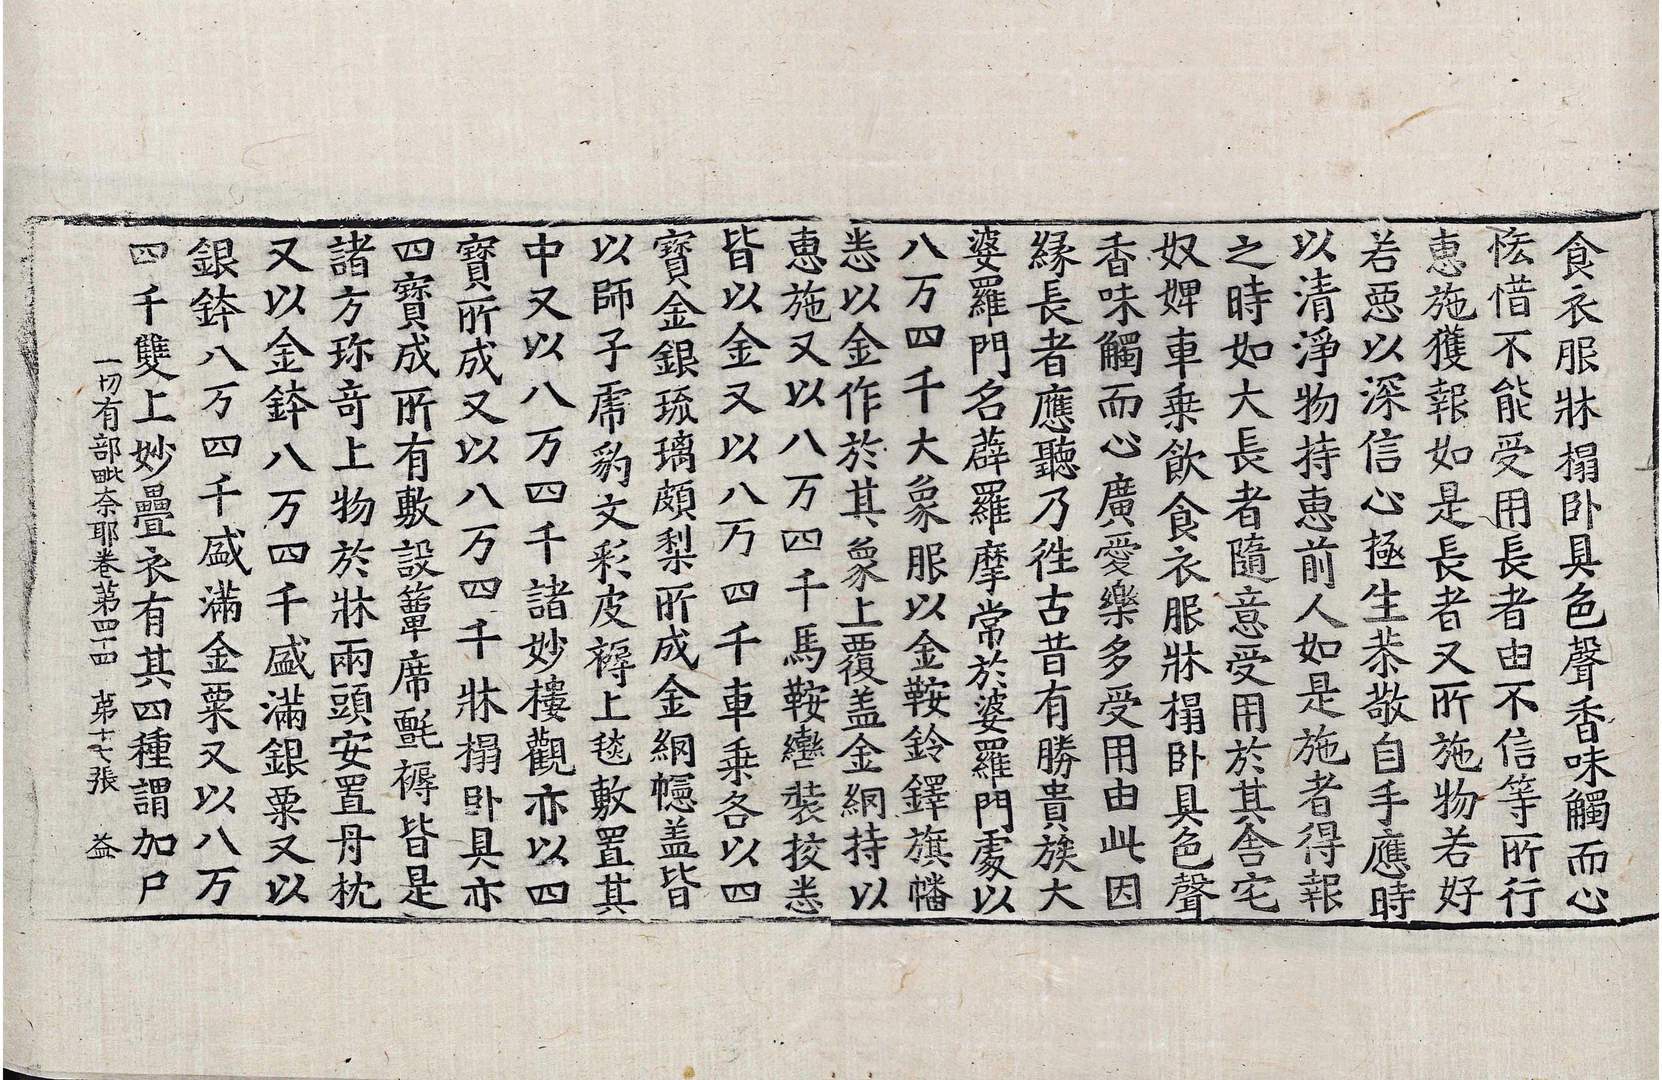 食衣服牀榻卧具色聲香味觸而心
悋惜不能受用長者由不信等所行
惠施獲報如是長者又所施物若好
若惡以深信心極生恭敬自手應時
以清淨物持惠前人如是施者得報
之時如大長者隨意受用於其舍宅
奴婢車乗飲食衣服牀榻卧具色聲
香味觸而心廣愛樂多受用由此因
緣長者應聽乃徃古昔有勝貴族大
婆羅門名薜羅摩常於婆羅門處以
八万四千大象服以金鞍鈴鐸旗幡
悉以金作於其象上覆盖金網持以
惠施又以八万四千馬鞍轡裝挍悉
皆以金又以八万四千車乗各以四
寳金銀琉璃頗梨所成金網幰盖皆
以師子虎豹文彩皮褥上毯敷置其
中又以八万四千諸妙樓觀亦以四
寳所成又以八万四千牀榻卧具亦
四寳成所有敷設簟席氈褥皆是
諸方珎竒上物於牀兩頭安置丹枕
又以金鉢八万四千盛滿銀粟又以
銀鉢八万四千盛滿金粟又以八万
四千雙上妙疊衣有其四種謂加尸
一切有部毗奈耶卷第四十四 第十七張 益